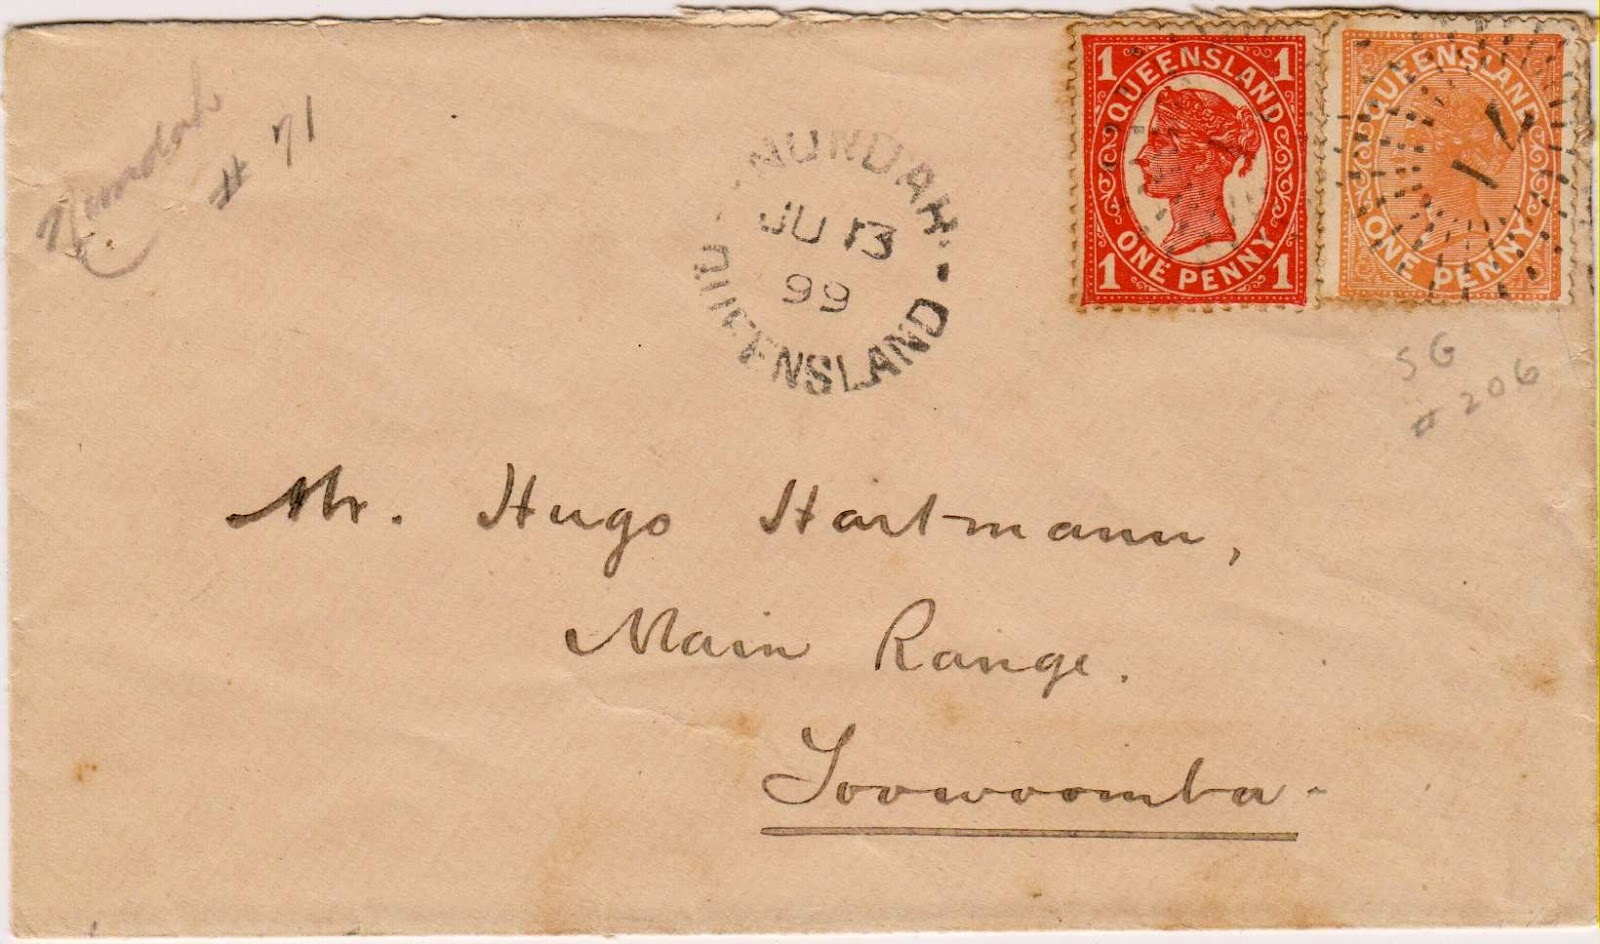 Nundah
# 71
NUNDAH
JU 13
99
QUEENSLAND
1 1
QUEENSLAND
ONE PENNY
1 1
QUEENSLAND
ONE PENNY
71
SG
# 206
Mr. Hugo Hartmann,
Main Range.
Toowoomba -